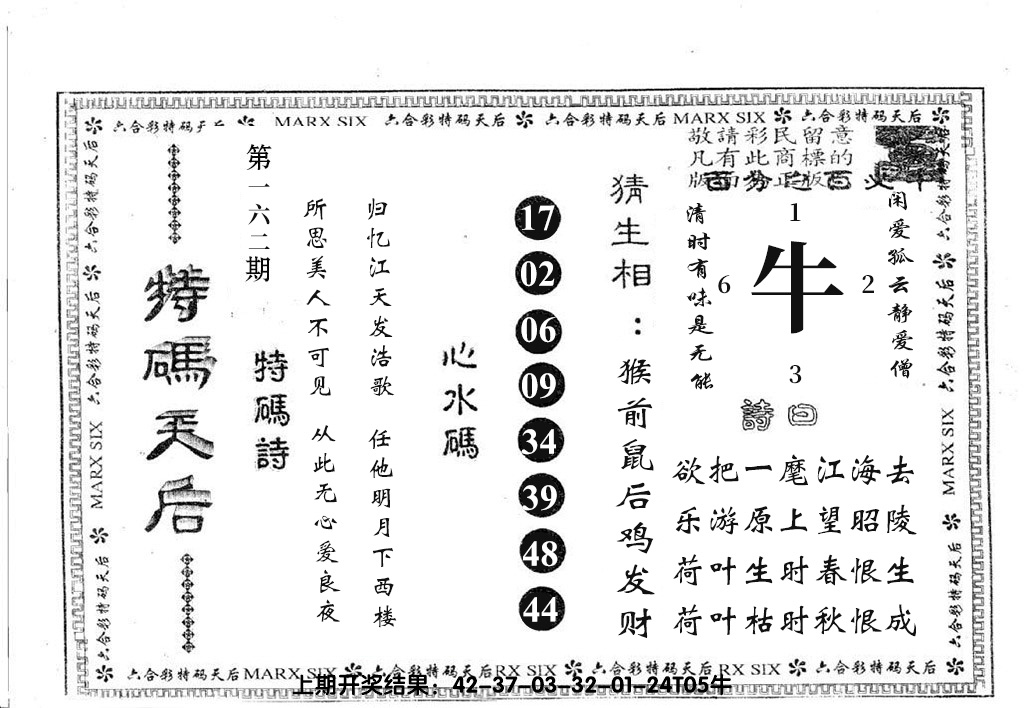 六合彩特码天后 MARX SIX 六合彩特码天后 六合彩特码天后 MARX SIX 六合彩特码天后
敬請彩民留意
凡有此商標的
闲爱孤云静爱僧
1
牛
6
2
3
清时有味是无能
曰
詩
去陵生成
海昭恨恨
江望春秋
麾上时时
一原生枯
把游叶叶
欲乐荷荷
猜生相：猴前鼠后鸡发财
17
02
06
09
34
39
48
44
心水碼
归忆江天发浩歌 任他明月下西楼
所思美人不可见 从此无心爱良夜
第一六二期
特碼詩
特碼天后
六合彩特码天后 六合彩特码天后 MARX SIX 六合彩特码天后
六合彩特码天后 六合彩特码天后 MARX SIX 六合彩特码天后
六合彩特码天后 MARX SIX 六合彩特码天后 RX SIX 六合彩特码天后 RX SIX 六合彩特码天后
上期开奖结果：42-37-03-32-01-24T05牛